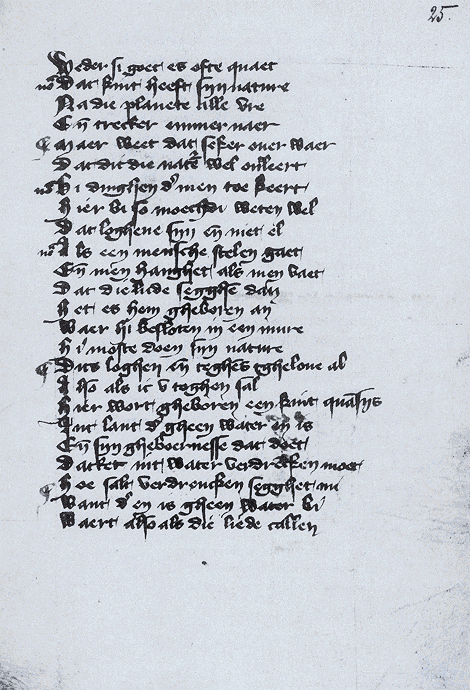 25.
Weder si goet es ofte quaet
no Dat kint heeft sijn nature
Na die planete alle vre
Eñ trecker emmer naer
Maer weet dat seker ouer waer
Dat dit die nature wel onleert
no Bi dinghen d' men toe keert
Hier bi so moechdi weten wel
Dat loghene sijn eñ niet el
no Als een mensche stelen gaet
Eñ men hanghet als men vaet
Dat die liede segghē dan
Het es hem gheboren an
Waer hi besloten in een mure
Hi moste doen sijn nature
Dats loghen eñ teghēs tghelove al
Also als ic v toghen sal
Hier wort gheboren een kint
Int lant d' gheen water in is
Eñ sijn gheboernesse dat doet
Datket int water verdrencken moet
Hoe salt verdroncken segghet mi
Want d' en is gheen water bi
Waert also als die liede callen